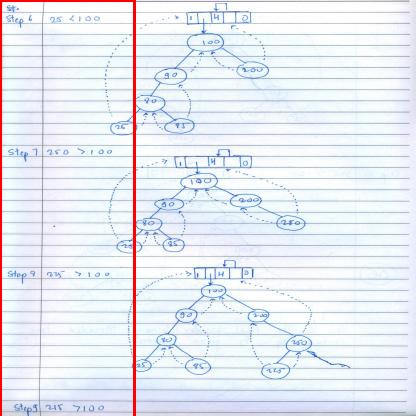 Step 6 25 < 100
1 H 0
100
90 200
80
25 85
Step 7 250 > 100
1 H 0
100
90 200
80 250
25 85
Step 8 225 > 100
1 H 0
100
90 200
80 250
25 85 225
Step 9 215 > 100